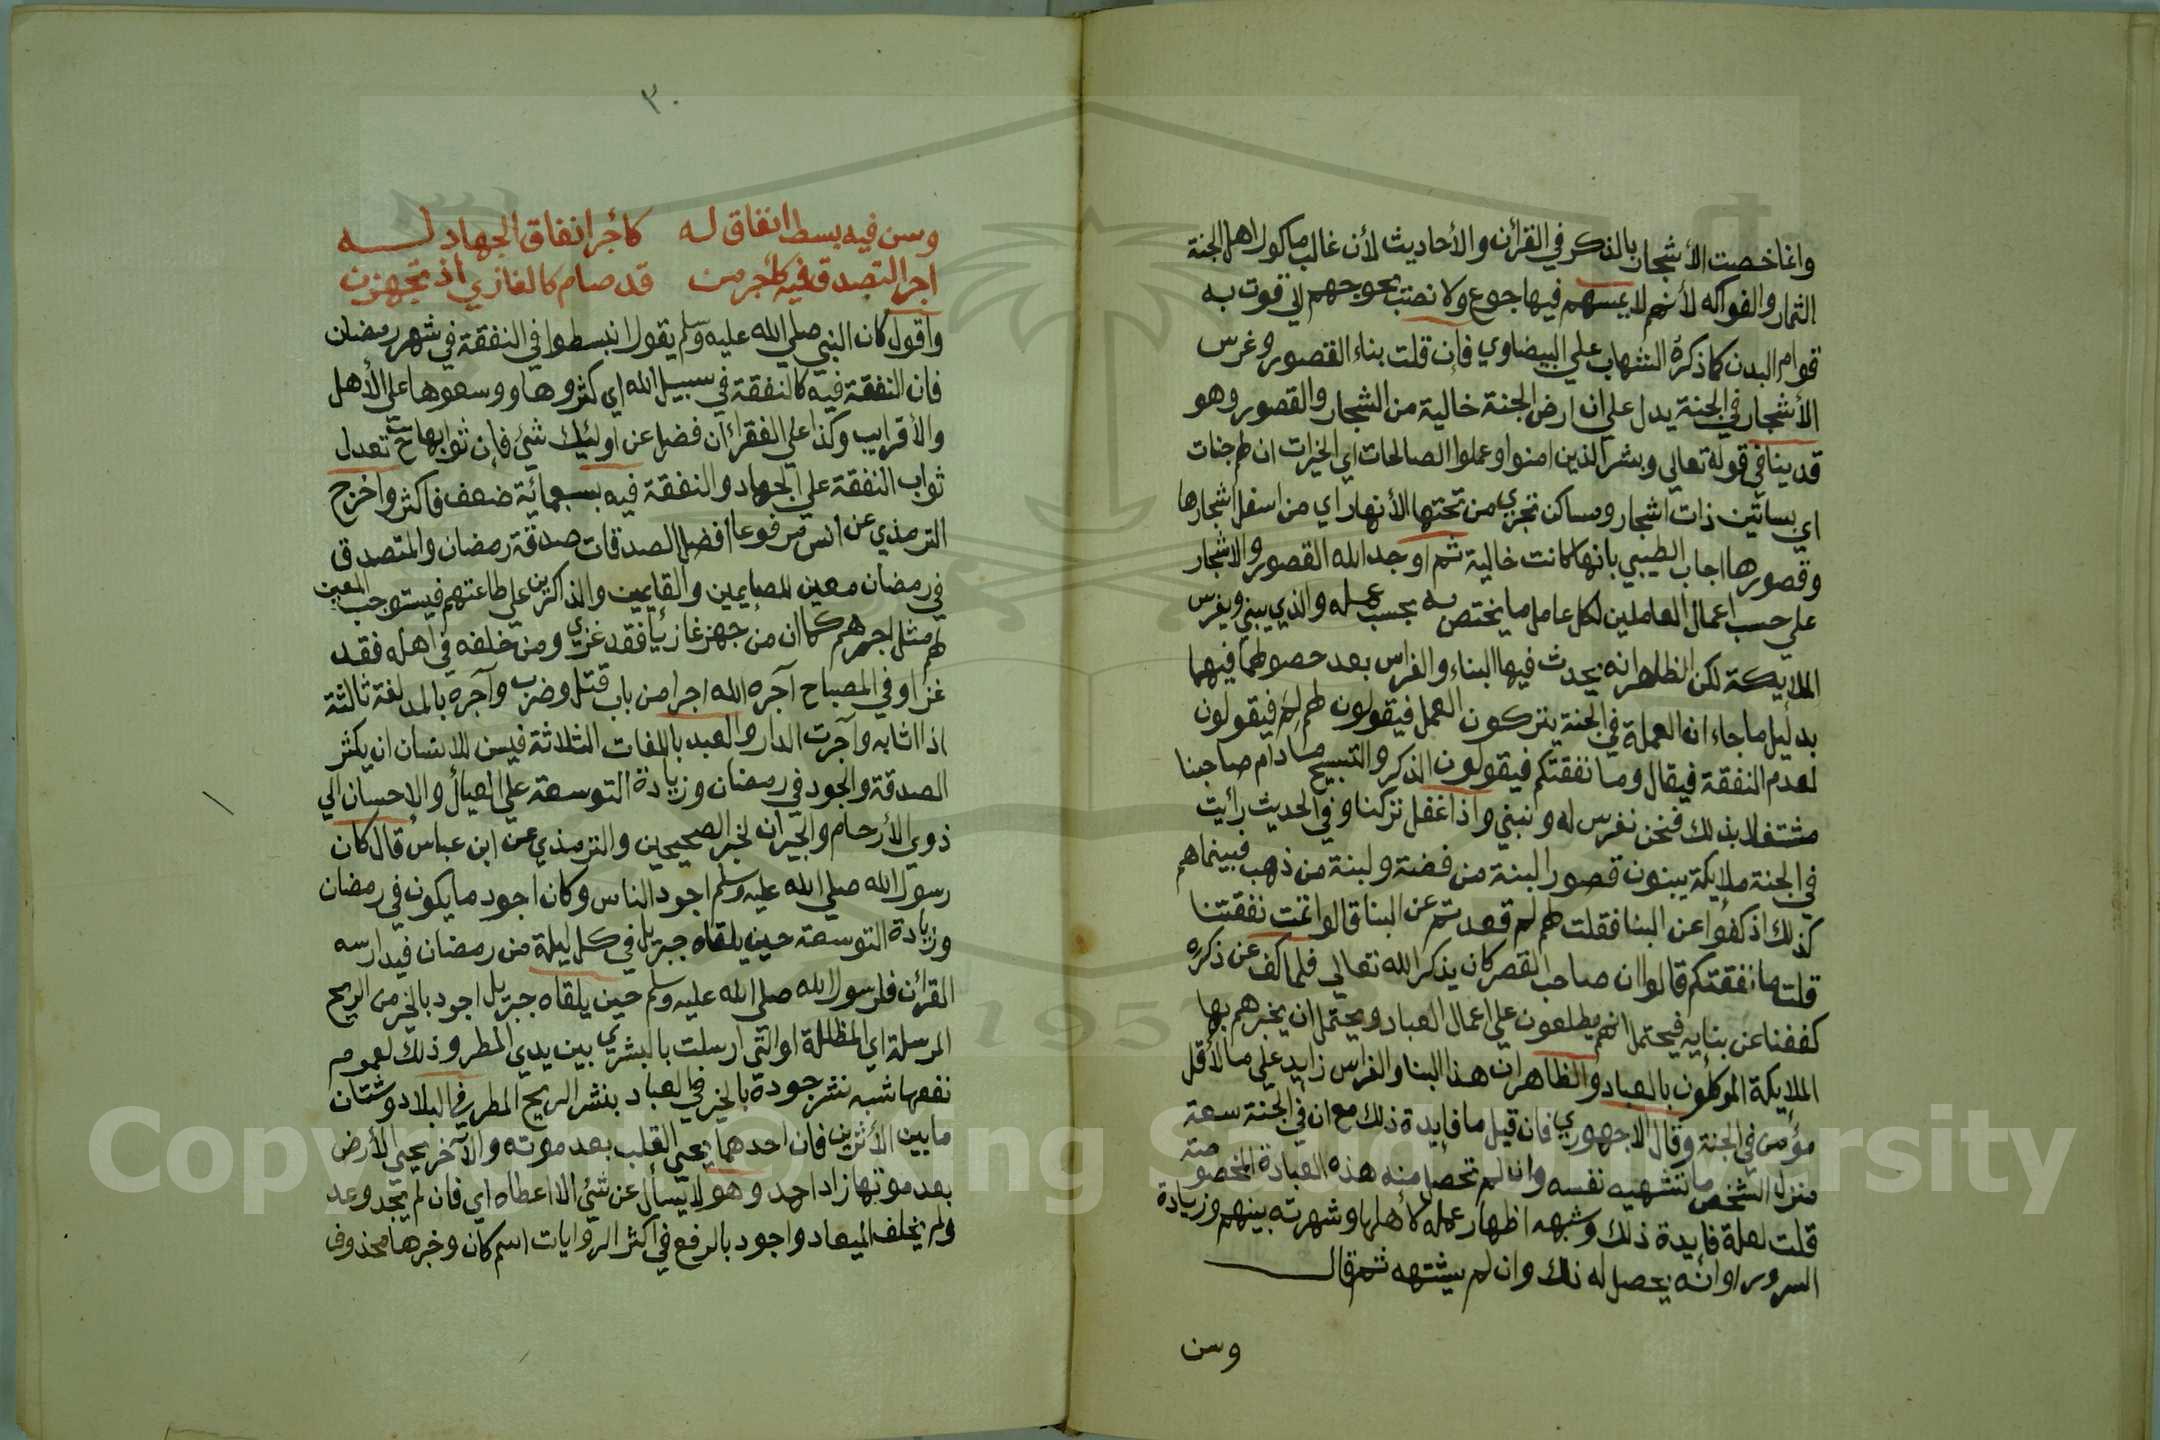 وانما خصت الأشجار بالذكر في القرأن والأحاديث لأن غالب مأكول اهل الجنة
الثمار والفواكه لأنهم لا يمسهم فيها جوع ولا نصب يحوجهم لي قوت به
قوام البدن كما ذكره الشهاب علي البيضاوي فإن قلت بناء القصور وغرس
الأشجار في الجنة يدل علي ان ارض الجنة خالية من الشجار والقصور وهو
قد ينافي قوله تعالي وبشر الذين امنوا وعملوا الصالحات اي الخيرات ان لهم جنات
اي بساتين ذات اشجار ومساكن تجري من تحتها الأنهار اي من اسفل اشجارها
وقصورها اجاب الطيبي بانها كانت خالية ثم اوجد الله القصور والاشجار
علي حسب اعمال العاملين لكل عامل ما يختص به بحسب عمله والذي يبني ويغرس
الملايكة لكن الظاهر انه يحدث فيها البناء والغراس بعد حصولهما فيها
بدليل ما جاء ان العملة في الجنة يتركون العمل فيقولون لهم لم فيقولون
لعدم النفقة فيقال وما نفقتكم فيقولون الذكر والتسبيح ما دام صاحبنا
مشتغلا بذلك فنحن نغرس له ونبني واذا غفل تركنا وفي الحديث رأيت
في الجنة ملايكة يبنون قصورا لبنة من فضة ولبنة من ذهب فبينما هم
كذلك اذ كفوا عن البنا فقلت لهم لم قعدتم عن البنا قالوا تمت نفقتنا
قلت ما نفقتكم قالوا ان صاحب القصر كان يذكر الله تعالي فلما كف عن ذكره
كففنا عن بنايه فيحتمل انهم يطلعون علي اعمال العباد ويحتمل ان يخبرهم بها
الملايكة الموكلون بالعباد والظاهر ان هذا البنا والغراس زايد علي ما لأقل
مؤمن في الجنة وقال الاجهوري فان قيل ما فايدة ذلك مع ان في الجنة سعة
منزل الشخص ما تشتهيه نفسه وان لم تحصل منه هذه العبادة المخصوصة
قلت لعلة فايدة ذلك وشبهه اظهار عمله لأهلها وشهرته بينهم وزيادة
السرور او انه يحصل له ذلك وان لم يشتهه ثم قال
وسن
٣٠
وسن فيه بسط انفاق له كأجر انفاق الجهاد له
اجر التصدق فيه كأجر من قد صام كالغازي اذ تجهزن
واقول كان النبي صلي الله عليه وسلم يقول انبسطوا في النفقة في شهر رمضان
فان النفقة فيه كالنفقة في سبيل الله اي كثروها ووسعوها علي الأهل
والأقرايب وكذا علي الفقراء ان فضل عن اوليك شئ فإن ثوابها ح تعدل
ثواب النفقة علي الجهاد والنفقة فيه بسبعمائة ضعف فاكثر واخرج
الترمذي عن انس مرفوعا افضل الصدقات صدقة رمضان والمتصدق
في رمضان معين للصايمين والقايمين والذاكرين علي طاعتهم فيستوجب المعين
لهم مثل اجرهم كما ان من جهز غازيا فقد غزي ومن خلفه في اهله فقد
غزا وفي المصباح آجره الله اجرا من باب قتل وضرب وآجره بالمد لغة ثالثة
اذا اثابه وآجرت الدار والعبد باللغات الثلاثة فيسن للانسان ان يكثر
الصدقة والجود في رمضان وزيادة التوسعة علي العيال والاحسان الي
ذوي الأرحام والجيران لخبر الصحيحين والترمذي عن ابن عباس قال كان
رسول الله صلي الله عليه وسلم اجود الناس وكان اجود ما يكون في رمضان
وزيادة التوسعة حين يلقاه جبريل في كل ليلة من رمضان فيدارسه
القرأن فلرسول الله صلي الله عليه وسلم حين يلقاه جبريل اجود بالخير من الريح
المرسلة اي المظللة او التي ارسلت بالبشري بين يدي المطر وذلك لعموم
نفعها شبه نشر جودة بالخير في العباد بنشر الريح المطر في البلاد وشتان
ما بين الأثرين فان احدهما يحيي القلب بعد موته والآخر يحيي الأرض
بعد موتها زاد احمد وهو لا يسأل عن شئ الا اعطاه اي فان لم يجد وعد
ولم يخلف الميعاد واجود بالرفع في اكثر الروايات اسم كان وخبرها محذوف